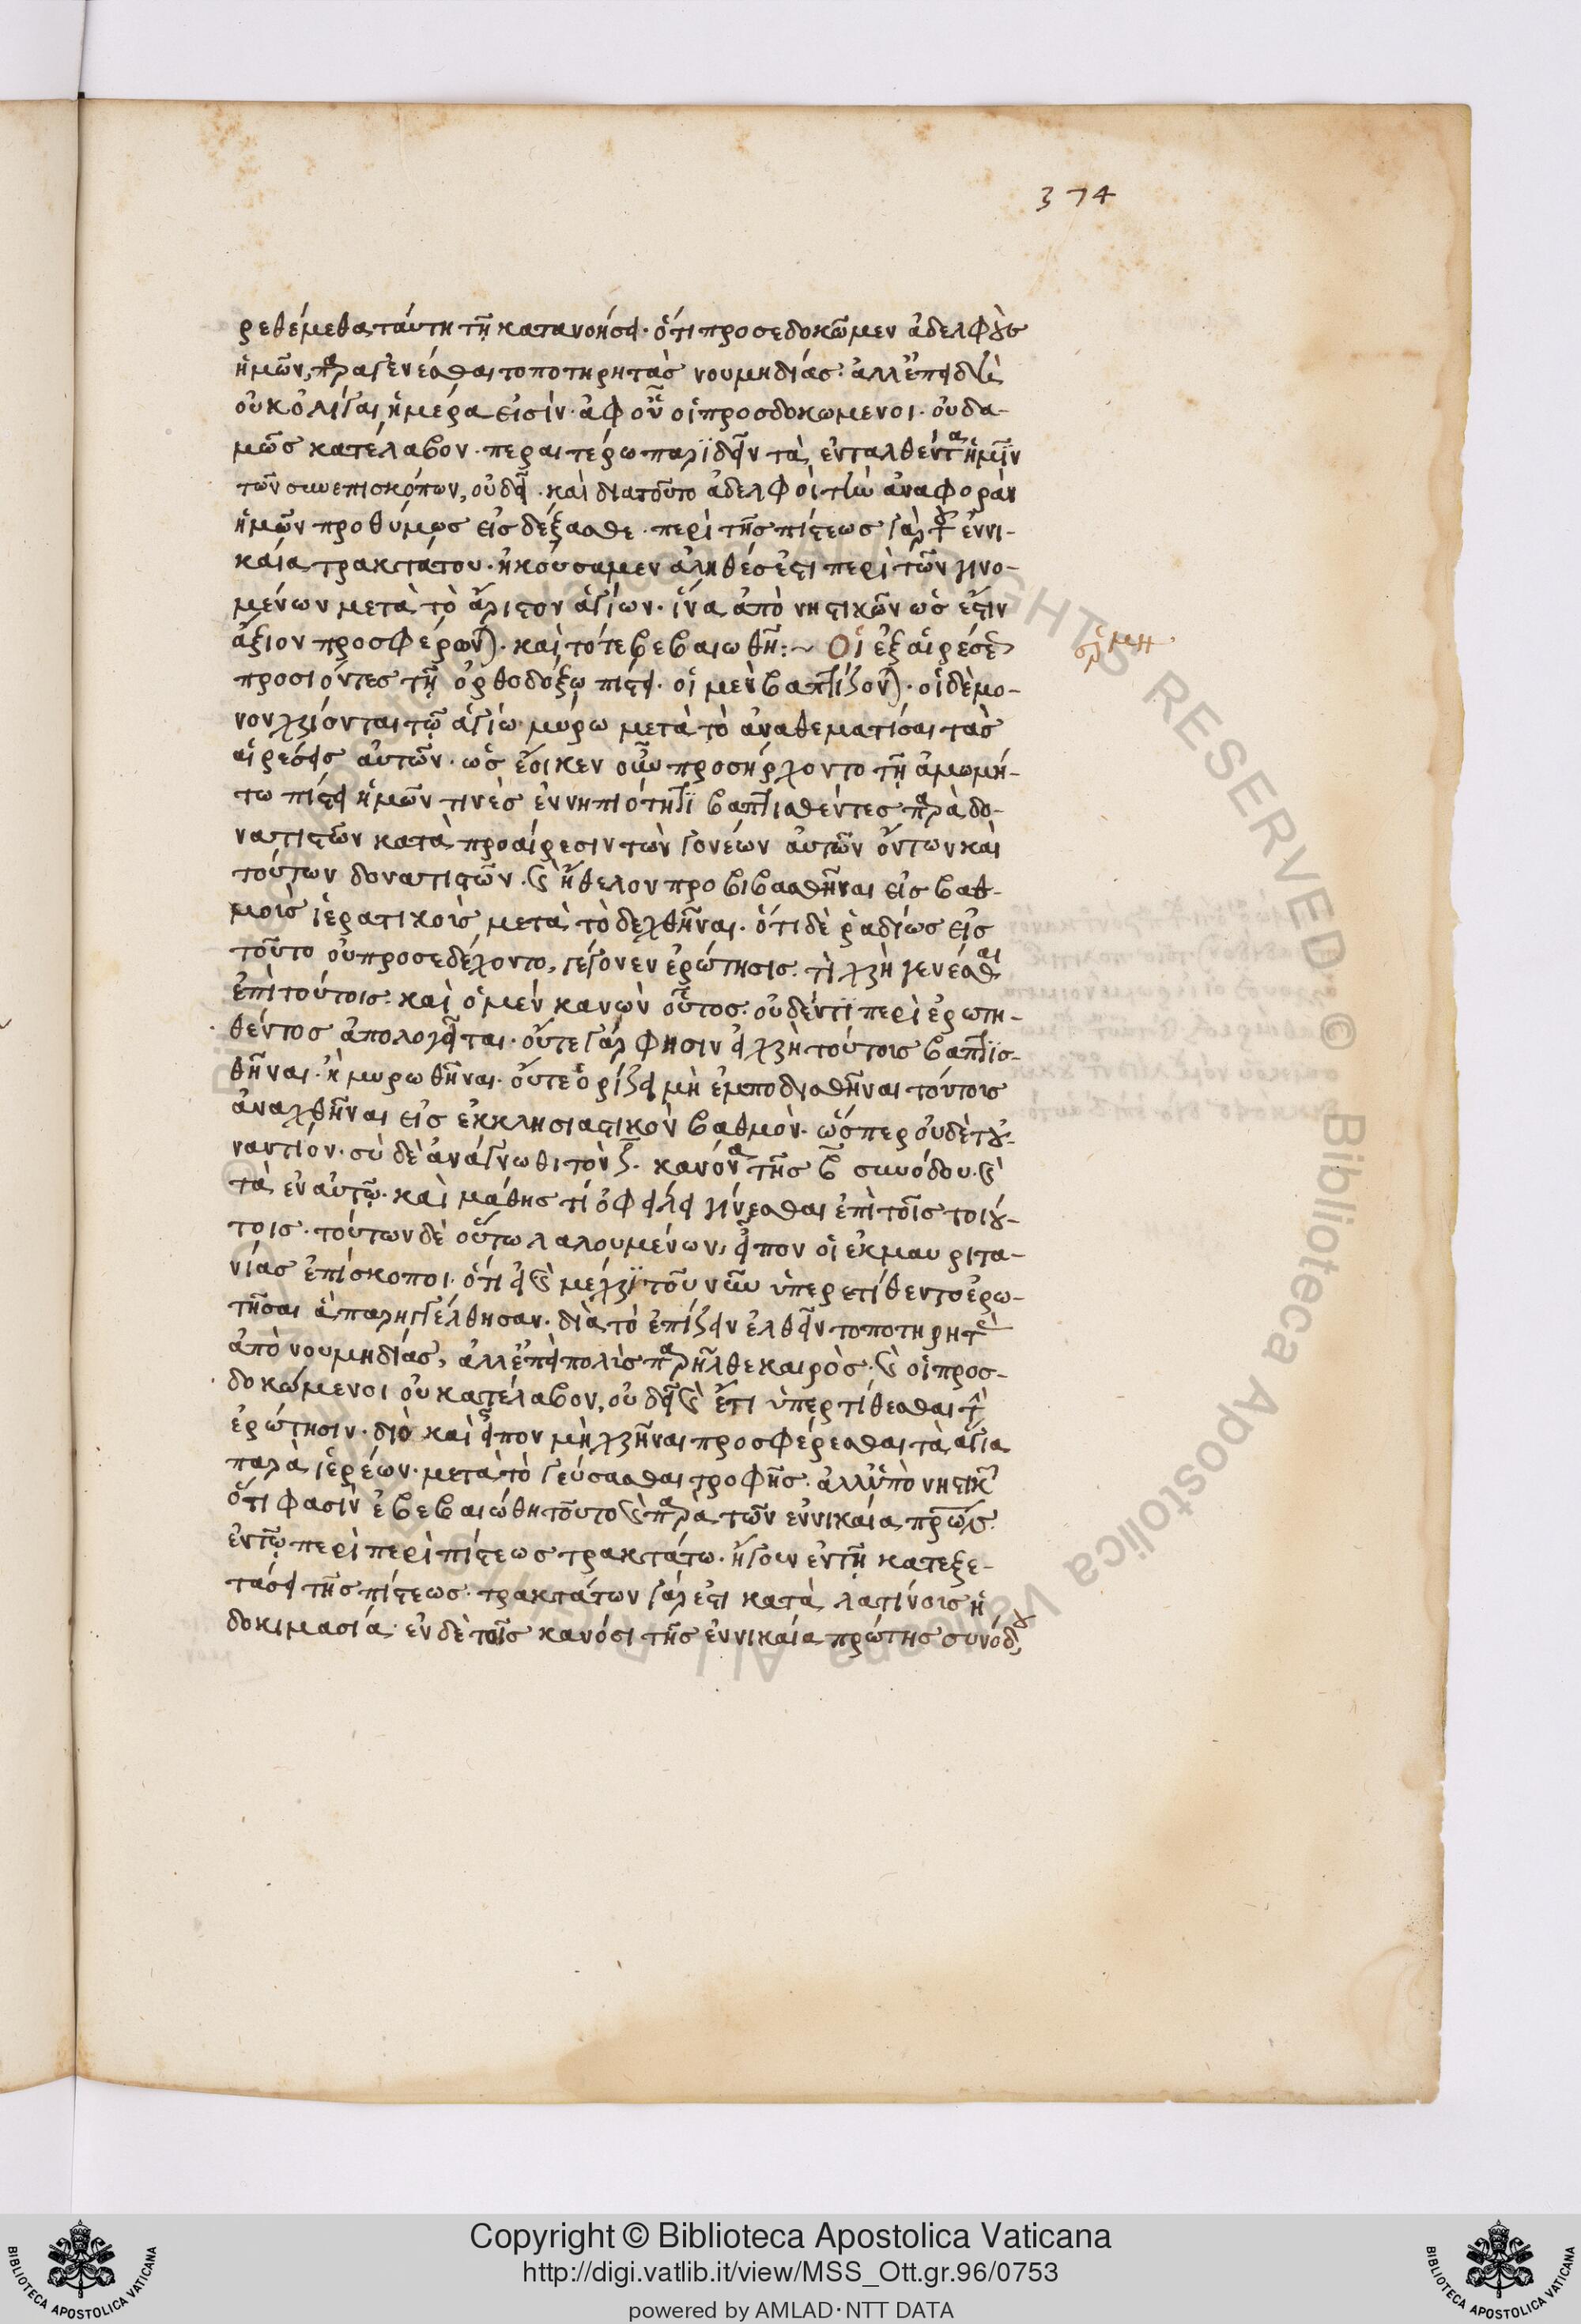 374
ρεθέμεθα ταύτη τῆ κατανοήσει· ὅτι προσεδοκῶμεν ἀδελφοὺς
ἡμῶν, παραγενέσθαι τοποτηρητὰς νουμηδίας· ἀλλ' ἐπειδὴ
οὐκ ὀλίγαι ἡμέραι εἰσὶν· ἀφ οὗ οἱ προσδοκωμενοι· οὐδα-
μῶς κατέλαβον· περαιτέρω παριδεῖν τὰ ἐνταλθέντα ἡμῖν
τῶν συνεπισκόπων, οὐ δεῖ· καὶ διατοῦτο ἀδελφοὶ τὴν ἀναφορὰν
ἡμῶν προθύμως εἰσδέξασθε· περὶ τῆς πίστεως γὰρ τοῦ ἐν νι-
καία τρακτάτου· ἠκούσαμεν ἀληθές ἐστι περὶ τῶν γινο-
μένων μετὰ τὸ ἄριστον ἁγίων· ἵνα ἀπὸ νηστικῶν ὡς ἐστιν
ἄξιον προσφέρωνται· καὶ τότε βεβαιωθῆ:~ Οἱ ἐξ αἱρέσεως
σρ μη
προσιόντες τῆ ὀρθοδόξω πίστει· οἱ μὲν βαπτίζονται· οἱ δὲ μό-
νον χρίονται τῶ ἁγίω μύρω μετὰ τὸ ἀναθεματίσαι τὰς
αἱρέσεις αὐτῶν· ὡς ἔοικεν οὖν προσήρχοντο τῆ ἀμωμή-
τω πίστει ἡμῶν τινὲς ἐν νηπιότητι βαπτισθέντες παρὰ δο-
νατιστῶν κατὰ προαίρεσιν τῶν γονέων αὐτῶν ὄντων καὶ
τούτων δονατιστῶν· καὶ ἤθελον προβιβασθῆναι εἰς βαθ-
μοὶς ἱερατικοὶς μετὰ τὸ δεχθῆναι· ὅτι δὲ ῥαδίως εἰς
τοῦτο οὐ προσεδέχοντο, γέγονεν ἐρώτησις· τὶ χρὴ γενέσθαι
ἐπὶ τούτοις· καὶ ὁ μὲν κανὼν οὗτος· οὐδέν τι περὶ ἐρωτη-
θέντος ἀπολογεῖται· οὔτε γάρ φησιν εἰ χρὴ τούτοις βαπτισ-
θῆναι· ἢ μυρωθῆναι· οὔτε ὁρίζει μὴ ἐμποδισθῆναι τούτοις
ἀναχθῆναι εἰς ἐκκλησιαστικὸν βαθμὸν· ὥσπερ οὐδὲ τοὐ-
ναντίον· σὺ δὲ ἀνάγνωθι τὸν ζ· κανόνα τῆς β συνόδου· καὶ
τὰ ἐν αὐτῶ· καὶ μάθης τί ὀφείλει γίνεσθαι ἐπὶ τοῖς τοιού-
τοις· τούτων δὲ οὕτω λαλουμένων, εἶπον οἱ ἐκ μαυριτα-
νίας ἐπίσκοποι· ὅτι εἰ καὶ μέχρι τοῦ νῦν ὑπερετίθεντο ἐρω-
τῆσαι ἃ παρηγγέλθησαν· διὰ τὸ ἐπίζειν ἐλθεῖν τοποτηρητὰς
ἀπὸ νουμηδίας, ἀλλ' ἐπεὶ πολὺς παρῆλθε καιρὸς· καὶ οἱ προσ-
δοκώμενοι οὐ κατέλαβον, οὐ δεῖ καὶ ἔτι ὑπερτίθεσθαι τὴν
ἐρώτησιν· διὸ καὶ εἶπον μὴ χρῆναι προσφέρεσθαι τὰ ἅγια
παρὰ ἱερέων· μετὰ τὸ γεύσασθαι τροφῆς· ἀλλ' ἀπὸ νηστικῶν
ὅτι φασὶν ἐβεβαιώθη τοῦτο καὶ παρὰ τῶν ἐν νικαία πρων
ἐν τῶ περὶ περὶ πίστεως τρακτάτω· ἤγουν ἐν τῆ κατεξε-
τάσει τῆς πίστεως· τρακτάτων γάρ ἐστι κατὰ λατίνοις ἡ
δοκιμασία· ἐν δὲ τοῖς κανόσι τῆς ἐν νικαία πρώτης συνόδου,
Copyright © Biblioteca Apostolica Vaticana
http://digi.vatlib.it/view/MSS_Ott.gr.96/0753
powered by AMLAD·NTT DATA